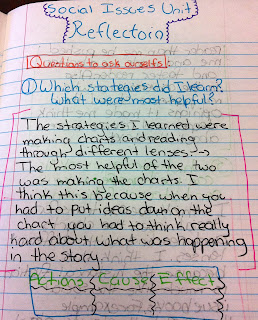 Social Issues Unit
Reflectoin
Questions to ask ourselfs:
① Which strategies did I learn?
What were most helpful?
The strategies I learned were
making charts and reading
through different lenses.
The most helpful of the two
was making the charts I
think this because when you
had to put ideas down on the
chart you had to think really
hard about what was happening
in the story.
Actions Cause Effect